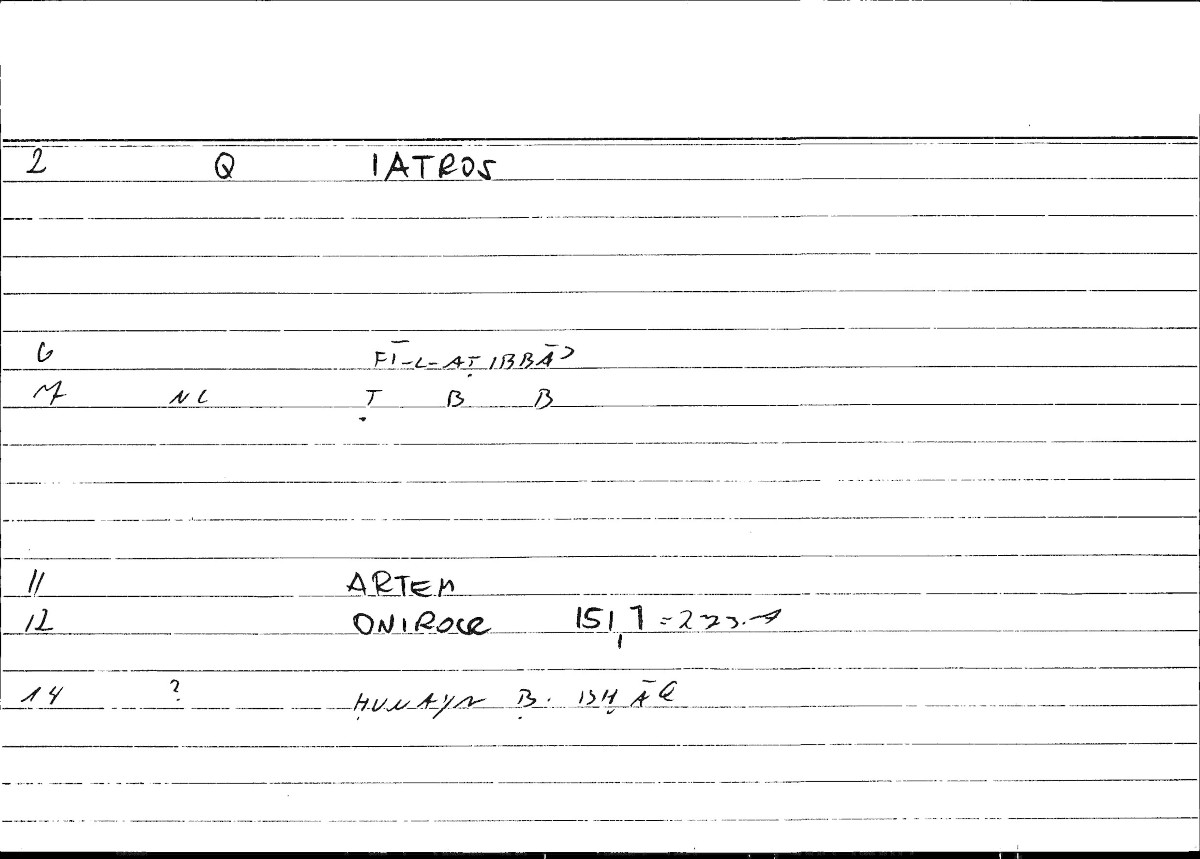 2 Q IATROS
6 FĪ-L-AṬIBBĀʾ
7 NL Ṭ B B
11 ARTEM
12 ONIROCR 151,7 =
14 ? ḤUNAYN B. ISḤĀQ